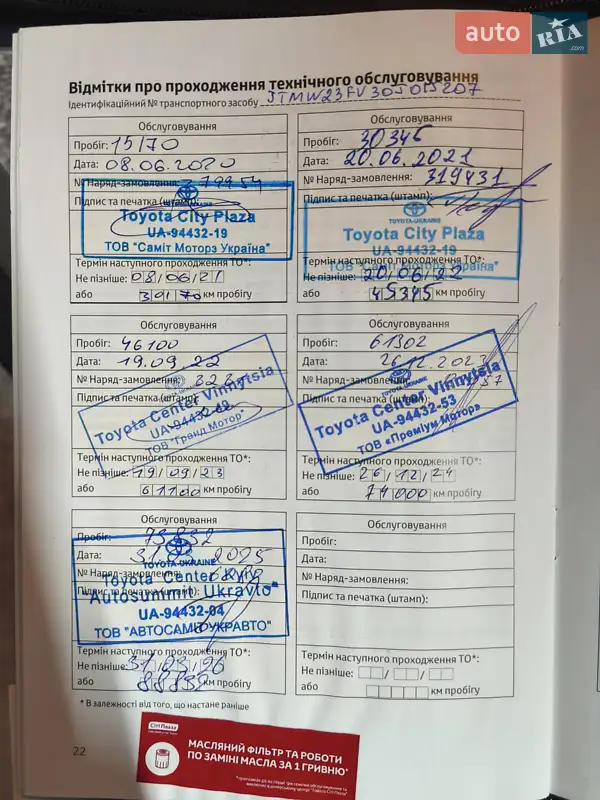 auto RIA .com
Відмітки про проходження технічного обслуговування
Ідентифікаційний № транспортного засобу JTMW23FV30J015207
Обслуговування
Пробіг: 15170
Дата: 08.06.2020
№ Наряд-замовлення: 279954
Підпис та печатка (штамп):
Toyota City Plaza
UA-94432-19
ТОВ "Саміт Моторз Україна"
Термін наступного проходження ТО*:
Не пізніше: 08/06/21
або 30170 км пробігу
Обслуговування
Пробіг: 30345
Дата: 20.06.2021
№ Наряд-замовлення: 319431
Підпис та печатка (штамп):
TOYOTA-UKRAINE
Toyota City Plaza
UA-94432-19
ТОВ "Саміт Моторз Україна"
Термін наступного проходження ТО*:
Не пізніше: 20/06/22
або 45345 км пробігу
Обслуговування
Пробіг: 46100
Дата: 19.09.22
№ Наряд-замовлення:
Підпис та печатка (штамп):
Toyota Center Vinnytsia
ТОВ "Гранд Мотор"
Термін наступного проходження ТО*:
Не пізніше: 19/09/23
або 61100 км пробігу
Обслуговування
Пробіг: 61302
Дата: 26.12.2023
№ Наряд-замовлення:
Підпис та печатка (штамп):
TOYOTA-UKRAINE
Toyota Center Vinnytsia
UA-94432-53
ТОВ «Преміум Мотор»
Термін наступного проходження ТО*:
Не пізніше: 26/12/24
або 74000 км пробігу
Обслуговування
Пробіг: 73832
Дата: 2025
№ Наряд-замовлення:
Підпис та печатка (штамп):
TOYOTA-UKRAINE
Toyota Center Kyiv
"Autosummit Ukravto"
UA-94432-04
ТОВ "АВТОСАМІТ УКРАВТО"
Термін наступного проходження ТО*:
Не пізніше: 31/03/26
або 88832 км пробігу
Обслуговування
Пробіг:
Дата:
№ Наряд-замовлення:
Підпис та печатка (штамп):
Термін наступного проходження ТО*:
Не пізніше:
або км пробігу
* В залежності від того, що настане раніше
22
City Plaza
МАСЛЯНИЙ ФІЛЬТР ТА РОБОТИ
ПО ЗАМІНІ МАСЛА ЗА 1 ГРИВНЮ*